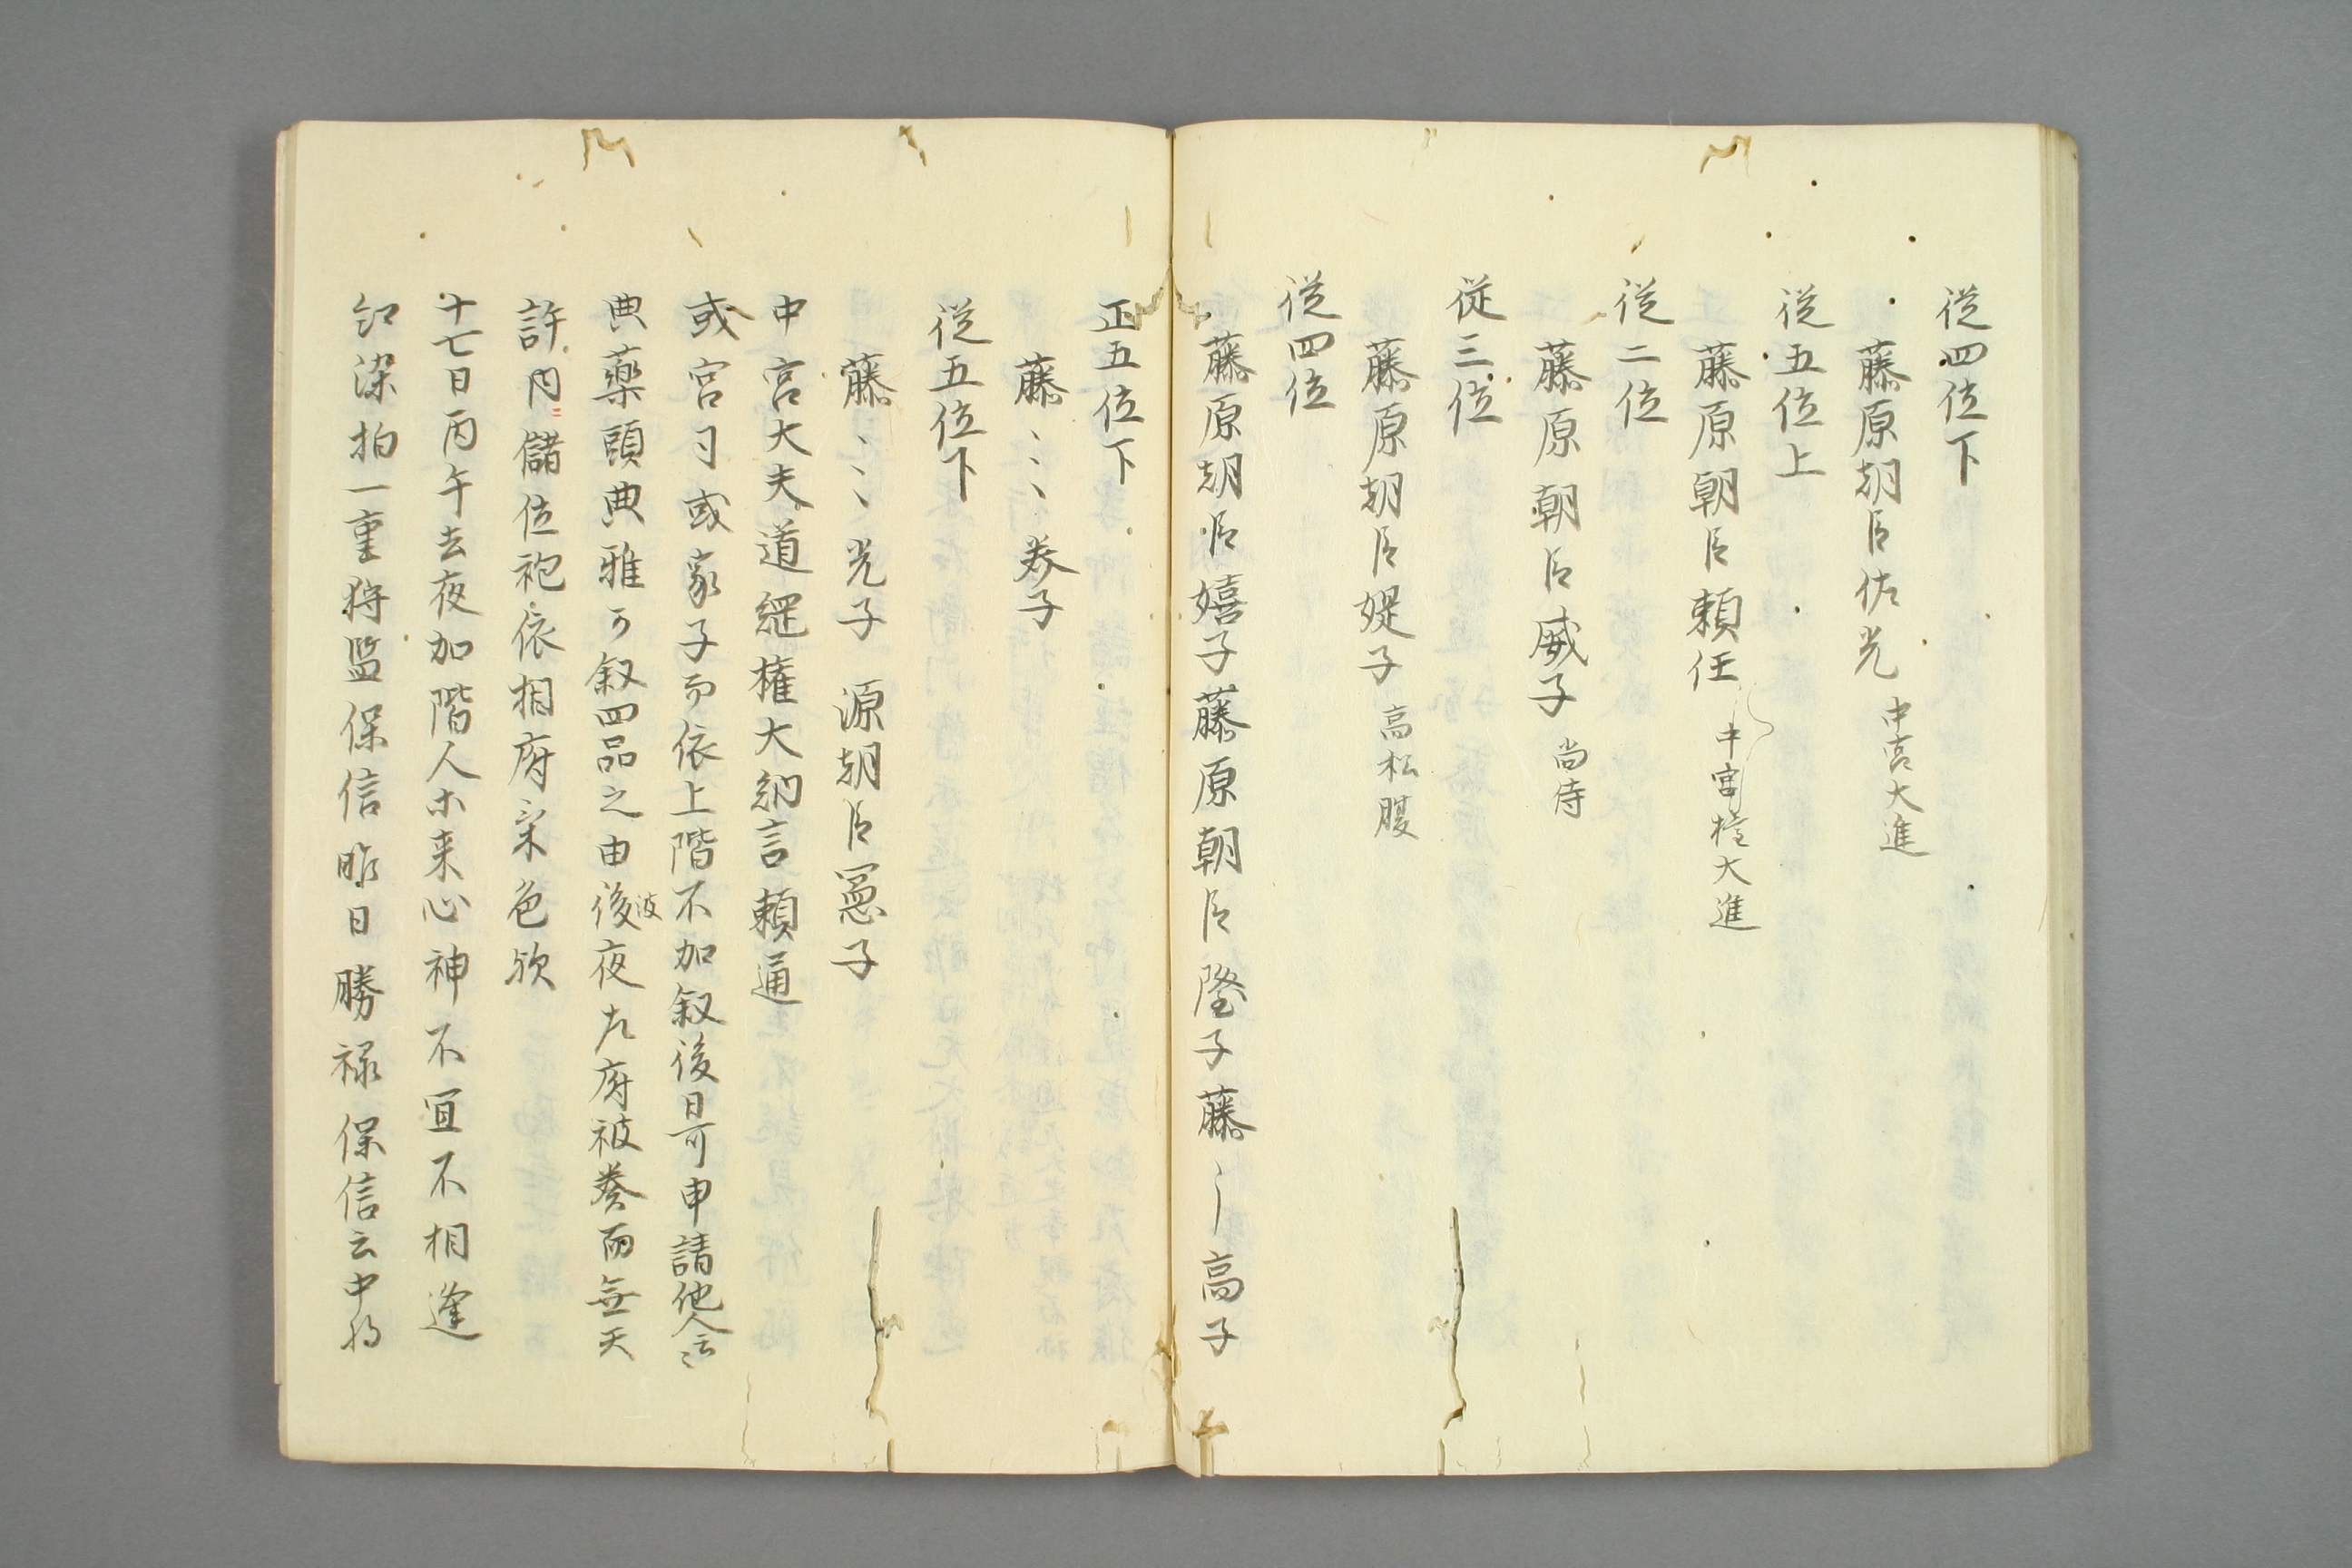 従四位下
藤原朝臣佐光 中宮大進
従五位上
藤原朝臣頼任 中宮権大進
従二位
藤原朝臣威子 尚侍
従三位
藤原朝臣媞子 高松腹
従四位
藤原朝臣嬉子藤原朝臣隆子藤〻高子
正五位下
藤〻〻〻子
従五位下
藤〻〻〻光子 源朝臣憲子
中宮大夫道綱権大納言頼通
或宮司或家子而依上階不加叙後日可申請他人云〻
典薬頭典雅可叙四品之由後彼夜左府被奏而無天
許内儲位袍依相府家色欤
十七日丙午去夜加階人ホ来心神不宜不相逢
紅染袙一重将監保信昨日勝禄保信云中将